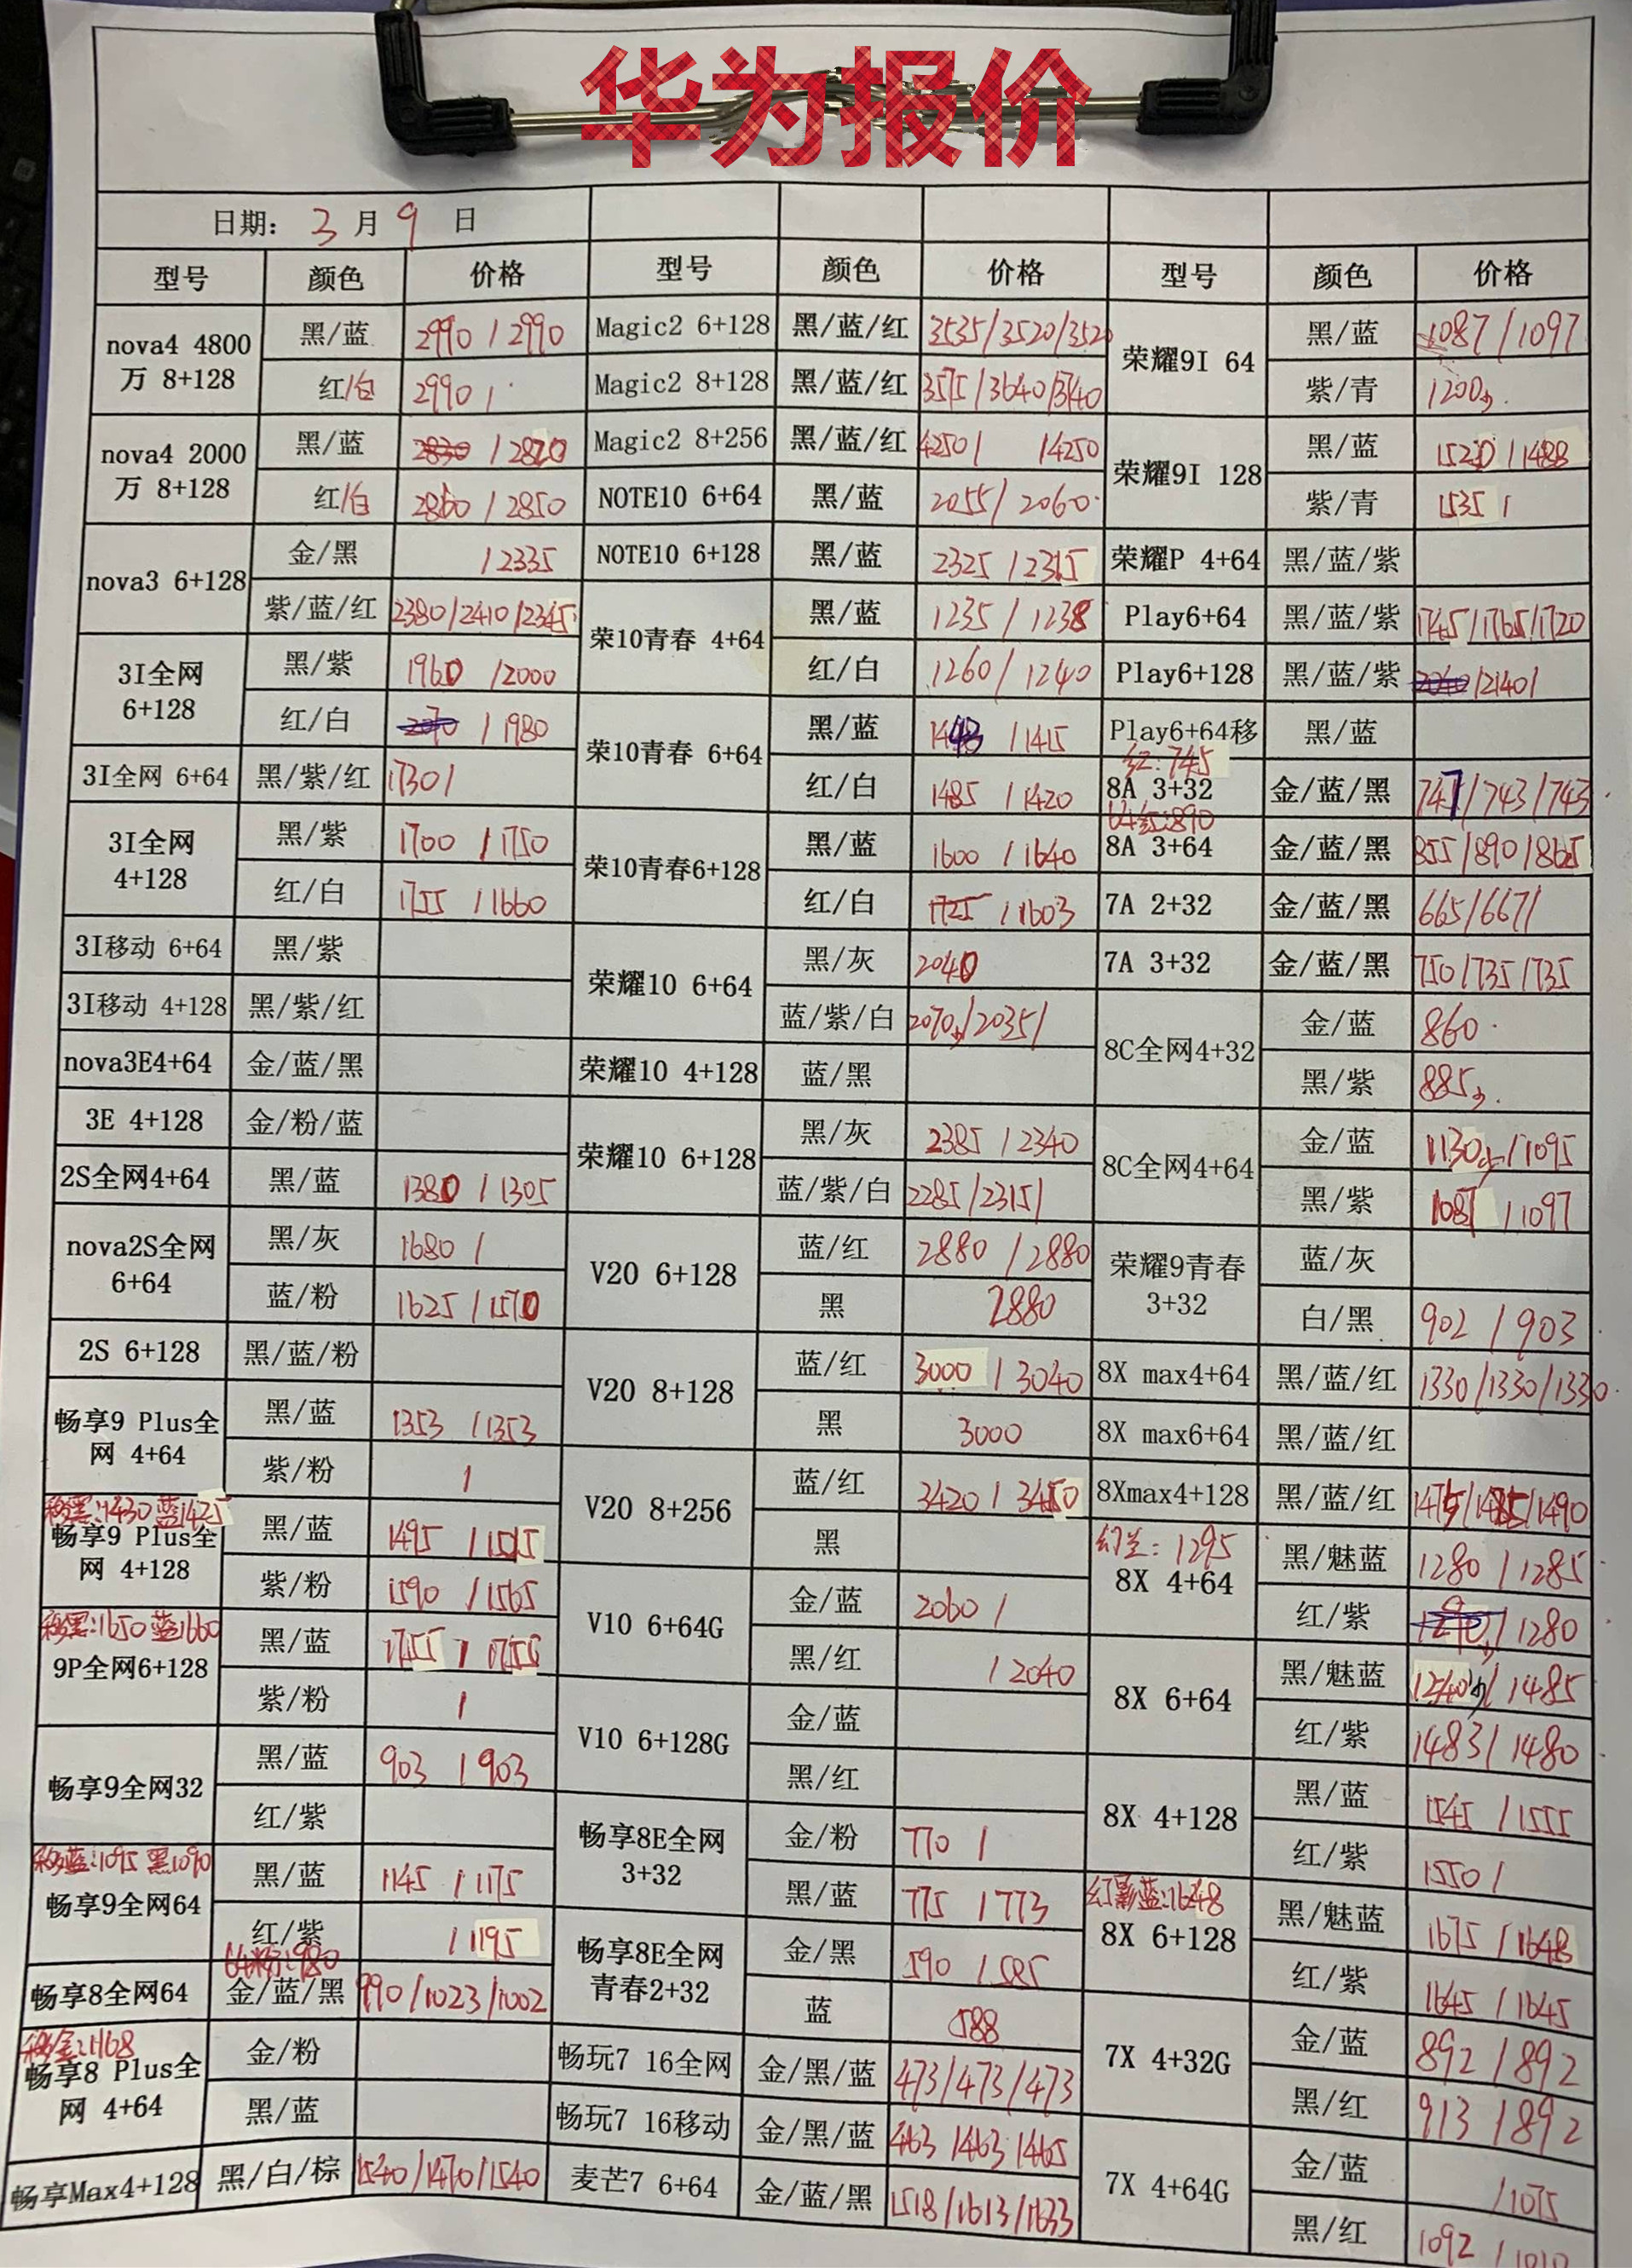 华为报价
日期: 3 月 9 日
型号 颜色 价格 型号 颜色 价格 型号 颜色 价格
nova4 4800万 8+128 黑/蓝 2990 / 2990
红/白 2990 /
nova4 2000万 8+128 黑/蓝 2830 / 2820
红/白 2860 / 2850
nova3 6+128 金/黑 / 2335
紫/蓝/红 2380/2410/2345
3I全网 6+128 黑/紫 1960 /2000
红/白 / 1980
3I全网 6+64 黑/紫/红 1730/
3I全网 4+128 黑/紫 1700 / 1750
红/白 1755 / 1660
3I移动 6+64 黑/紫
3I移动 4+128 黑/紫/红
nova3E4+64 金/蓝/黑
3E 4+128 金/粉/蓝
2S全网4+64 黑/蓝 1380 / 1305
nova2S全网 6+64 黑/灰 1680 /
蓝/粉 1625 / 1570
2S 6+128 黑/蓝/粉
畅享9 Plus全网 4+64 黑/蓝 1353 / 1353
紫/粉 /
移黑:1430 蓝1425
畅享9 Plus全网 4+128 黑/蓝 1495 / 1515
紫/粉 1590 / 1565
移黑:1650 蓝1660
9P全网6+128 黑/蓝 1755 / 1755
紫/粉 /
畅享9全网32 黑/蓝 903 / 903
红/紫
移蓝:1095 黑1090
畅享9全网64 黑/蓝 1145 / 1175
红/紫 / 1195
64粉:980
畅享8全网64 金/蓝/黑 990/1023/1002
移金:1168
畅享8 Plus全网 4+64 金/粉
黑/蓝
畅享Max4+128 黑/白/棕 1540/1470/1540
Magic2 6+128 黑/蓝/红 3535/3520/3520
Magic2 8+128 黑/蓝/红 3575/3640/3740
Magic2 8+256 黑/蓝/红 4250/ /4250
NOTE10 6+64 黑/蓝 2055/ 2060
NOTE10 6+128 黑/蓝 2325 / 2315
荣10青春 4+64 黑/蓝 1235 / 1238
红/白 1260/ 1240
荣10青春 6+64 黑/蓝 1443 / 1415
红/白 1485 / 1420
荣10青春6+128 黑/蓝 1600 / 1640
红/白 1725 / 1603
荣耀10 6+64 黑/灰 2040
蓝/紫/白 2070少/2035/
荣耀10 4+128 蓝/黑
荣耀10 6+128 黑/灰 2385 / 2340
蓝/紫/白 2285/2315/
V20 6+128 蓝/红 2880 / 2880
黑 2880
V20 8+128 蓝/红 3000 / 3040
黑 3000
V20 8+256 蓝/红 3420 / 3450
黑
V10 6+64G 金/蓝 2060 /
黑/红 / 2040
V10 6+128G 金/蓝
黑/红
畅享8E全网 3+32 金/粉 770 /
黑/蓝 775 / 773
畅享8E全网青春2+32 金/黑 590 / 585
蓝 588
畅玩7 16全网 金/黑/蓝 473/473/473
畅玩7 16移动 金/黑/蓝 463 /463/465
麦芒7 6+64 金/蓝/黑 1518/1613/1633
荣耀9I 64 黑/蓝 1087 / 1097
紫/青 1200少
荣耀9I 128 黑/蓝 1520 / 1488
紫/青 1535 /
荣耀P 4+64 黑/蓝/紫
Play6+64 黑/蓝/紫 1745/1765/1720
Play6+128 黑/蓝/紫 /2140/
Play6+64移 黑/蓝
红:745
8A 3+32 金/蓝/黑 747/743/743
64红:890
8A 3+64 金/蓝/黑 855/890/865
7A 2+32 金/蓝/黑 665/667/
7A 3+32 金/蓝/黑 750/735/735
8C全网4+32 金/蓝 860
黑/紫 885少
8C全网4+64 金/蓝 1130少/1095
黑/紫 1087 / 1097
荣耀9青春 3+32 蓝/灰
白/黑 902 / 903
8X max4+64 黑/蓝/红 1330/1330/1330
8X max6+64 黑/蓝/红
8Xmax4+128 黑/蓝/红 1475/1485/1490
幻兰: 1295
8X 4+64 黑/魅蓝 1280 / 1285
红/紫 / 1280
8X 6+64 黑/魅蓝 / 1485
红/紫 1483/ 1480
8X 4+128 黑/蓝 1545 / 1555
红/紫 1550 /
幻影蓝:1648
8X 6+128 黑/魅蓝 1675 / 1648
红/紫 1645 / 1645
7X 4+32G 金/蓝 892 / 892
黑/红 913 / 892
7X 4+64G 金/蓝 / 1075
黑/红 1092 /